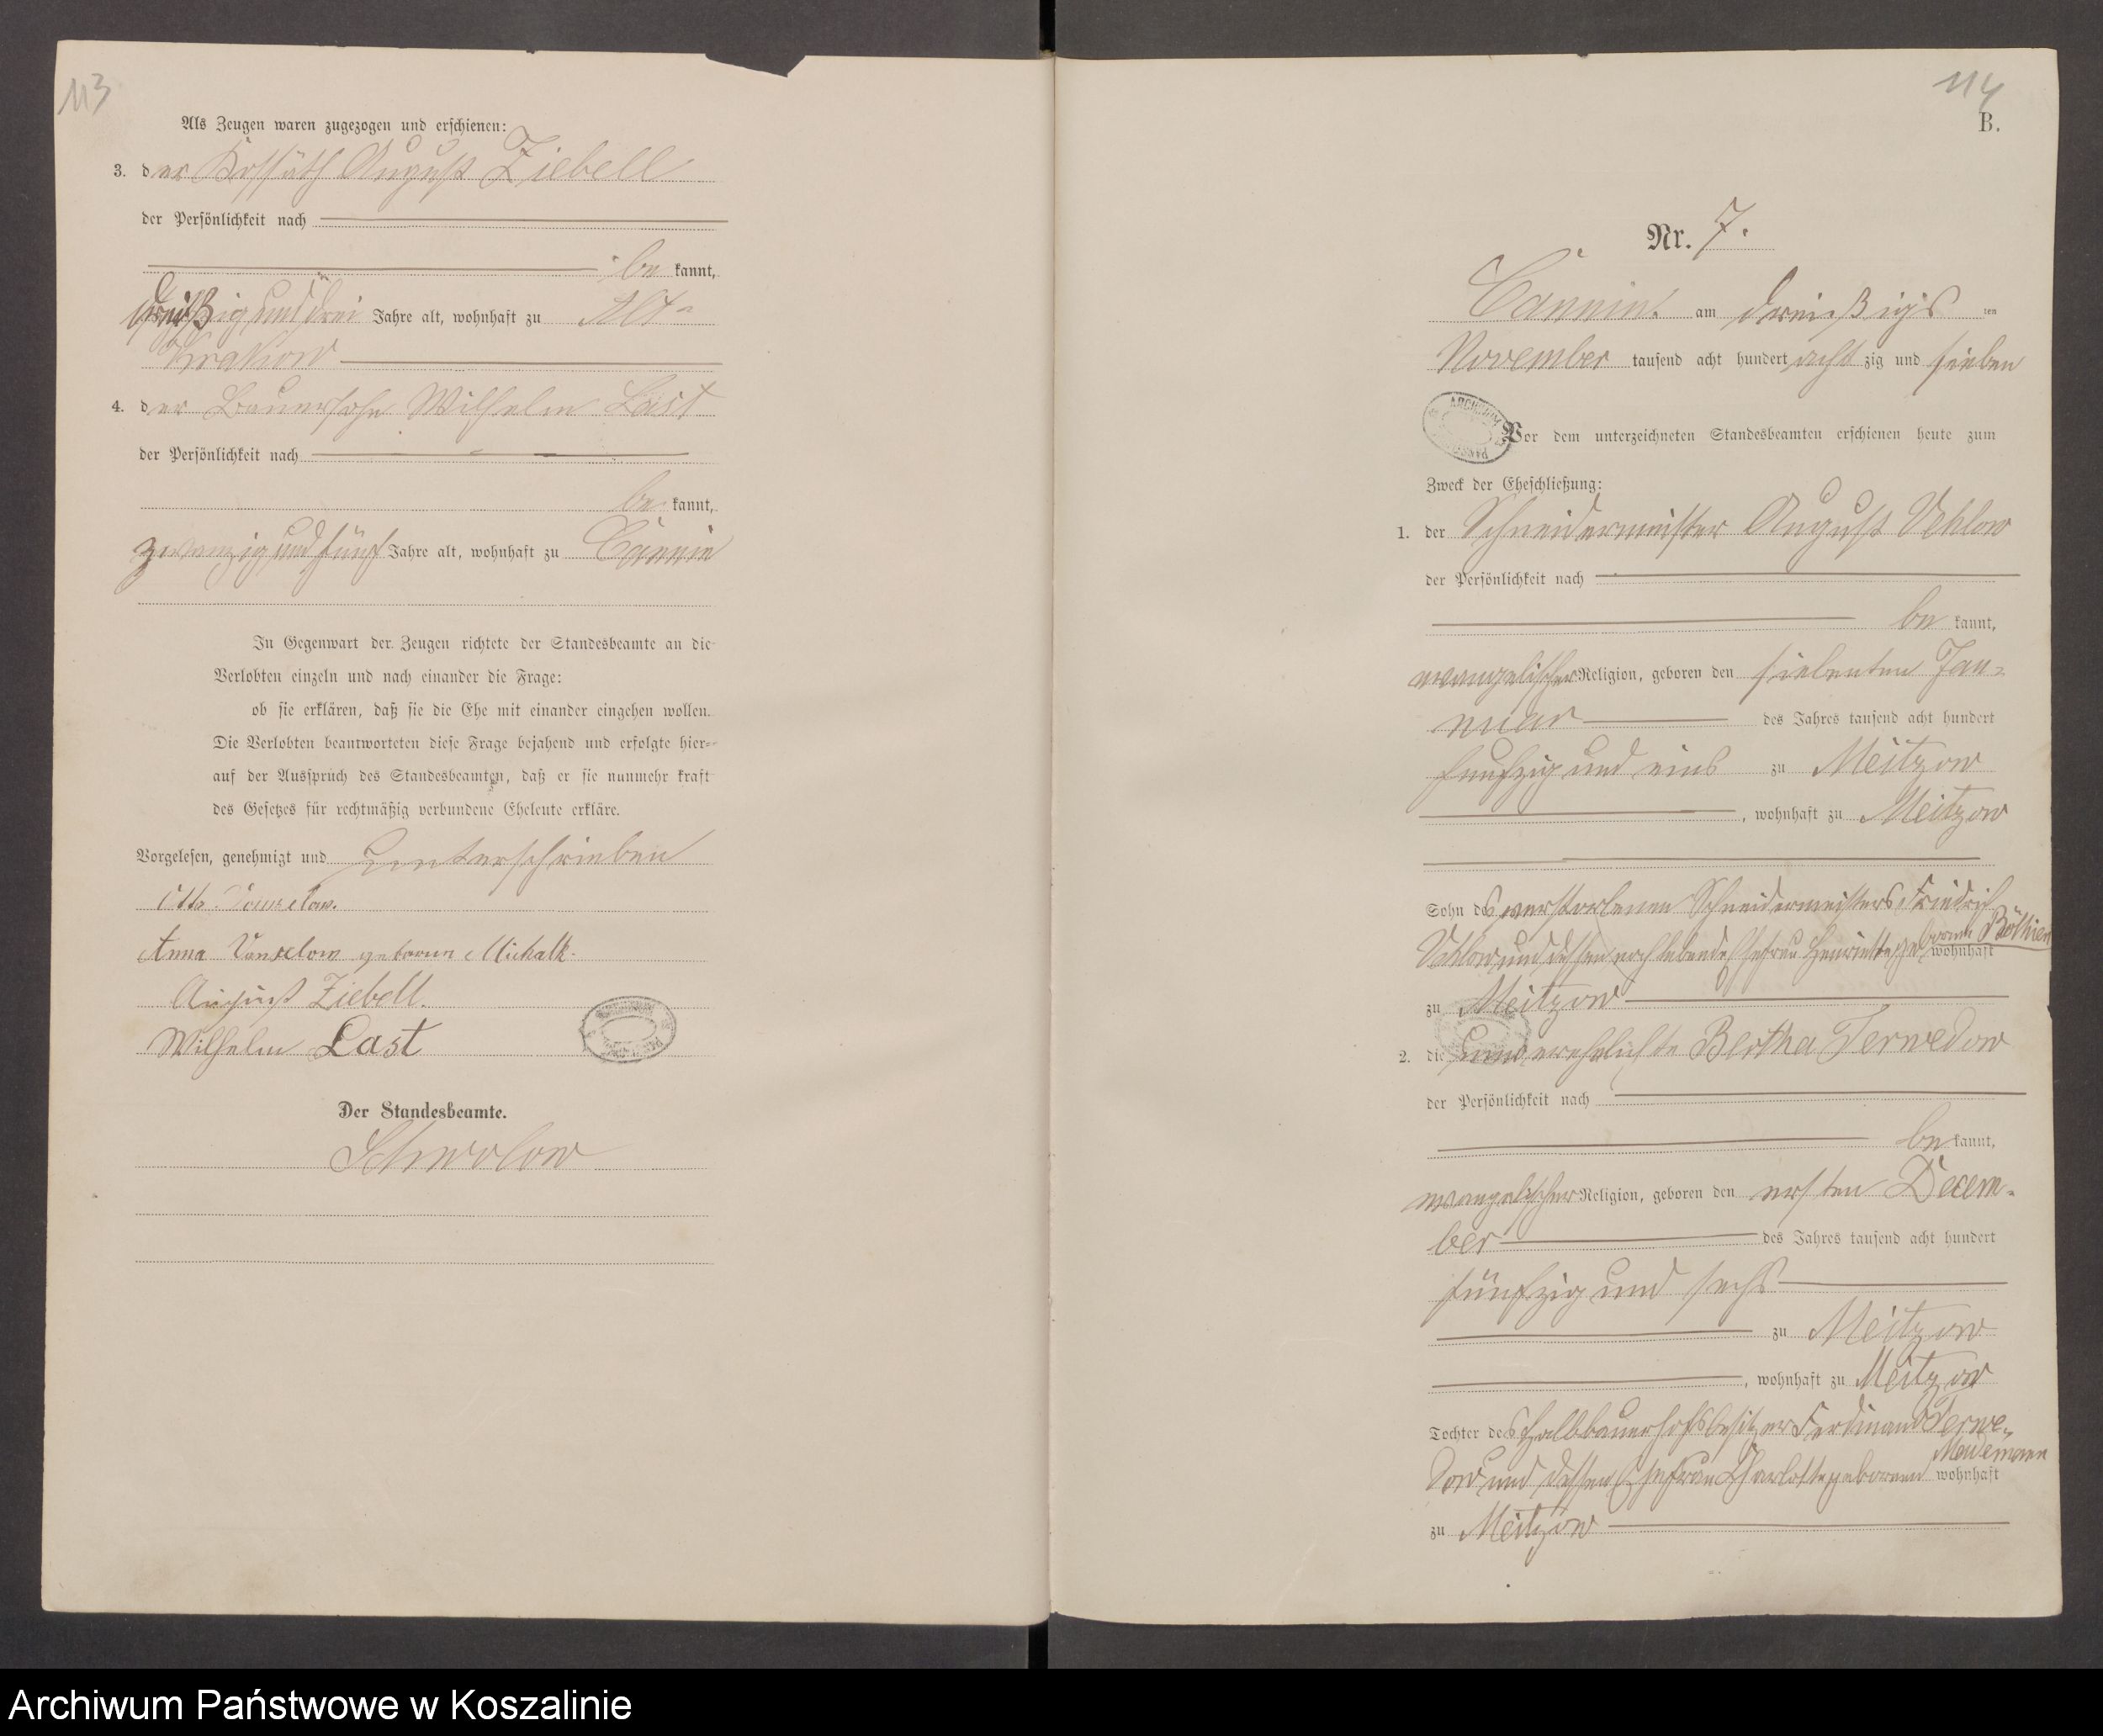 113
Als Zeugen waren zugezogen und erschienen:
3. der Kossäth August Ziebell
der Persönlichkeit nach
be kannt,
dreißig und drei Jahre alt, wohnhaft zu Alt-
Krakow
4. der Bauersohn Wilhelm Last
der Persönlichkeit nach
be kannt,
zwanzig und fünf Jahre alt, wohnhaft zu Cannin
In Gegenwart der Zeugen richtete der Standesbeamte an die
Verlobten einzeln und nach einander die Frage:
ob sie erklären, daß sie die Ehe mit einander eingehen wollen.
Die Verlobten beantworteten diese Frage bejahend und erfolgte hier-
auf der Ausspruch des Standesbeamten, daß er sie nunmehr kraft
des Gesetzes für rechtmäßig verbundene Eheleute erkläre.
Vorgelesen, genehmigt und unterschrieben
Otto Vanselow.
Anna Vanselow geborene Michalk.
August Ziebell.
Wilhelm Last
Der Standesbeamte.
Schwolow
114
B.
Nr. 7.
Cannin am dreißigs ten
November tausend acht hundert acht zig und sieben
Vor dem unterzeichneten Standesbeamten erschienen heute zum
Zweck der Eheschließung:
1. der Schneidermeister August Vehlow
der Persönlichkeit nach
be kannt,
evangelischer Religion, geboren den siebenten Jan-
nuar des Jahres tausend acht hundert
funfzig und eins zu Meitzow
, wohnhaft zu Meitzow
Sohn des verstorbenen Schneidermeisters Friedrich
Vehlow und dessen noch lebende Ehefrau Henriette geborene Böthien wohnhaft
zu Meitzow
2. die unverehelichte Bertha Terwedow
der Persönlichkeit nach
be kannt,
evangelischer Religion, geboren den ersten Decem-
ber des Jahres tausend acht hundert
fünfzig und sechs
zu Meitzow
, wohnhaft zu Meitzow
Tochter des Halbbauerhofsbesitzer Ferdinand Terwe-
dow und dessen Ehefrau Charlotte geborenen wohnhaft
zu Meitzow
Archiwum Państwowe w Koszalinie